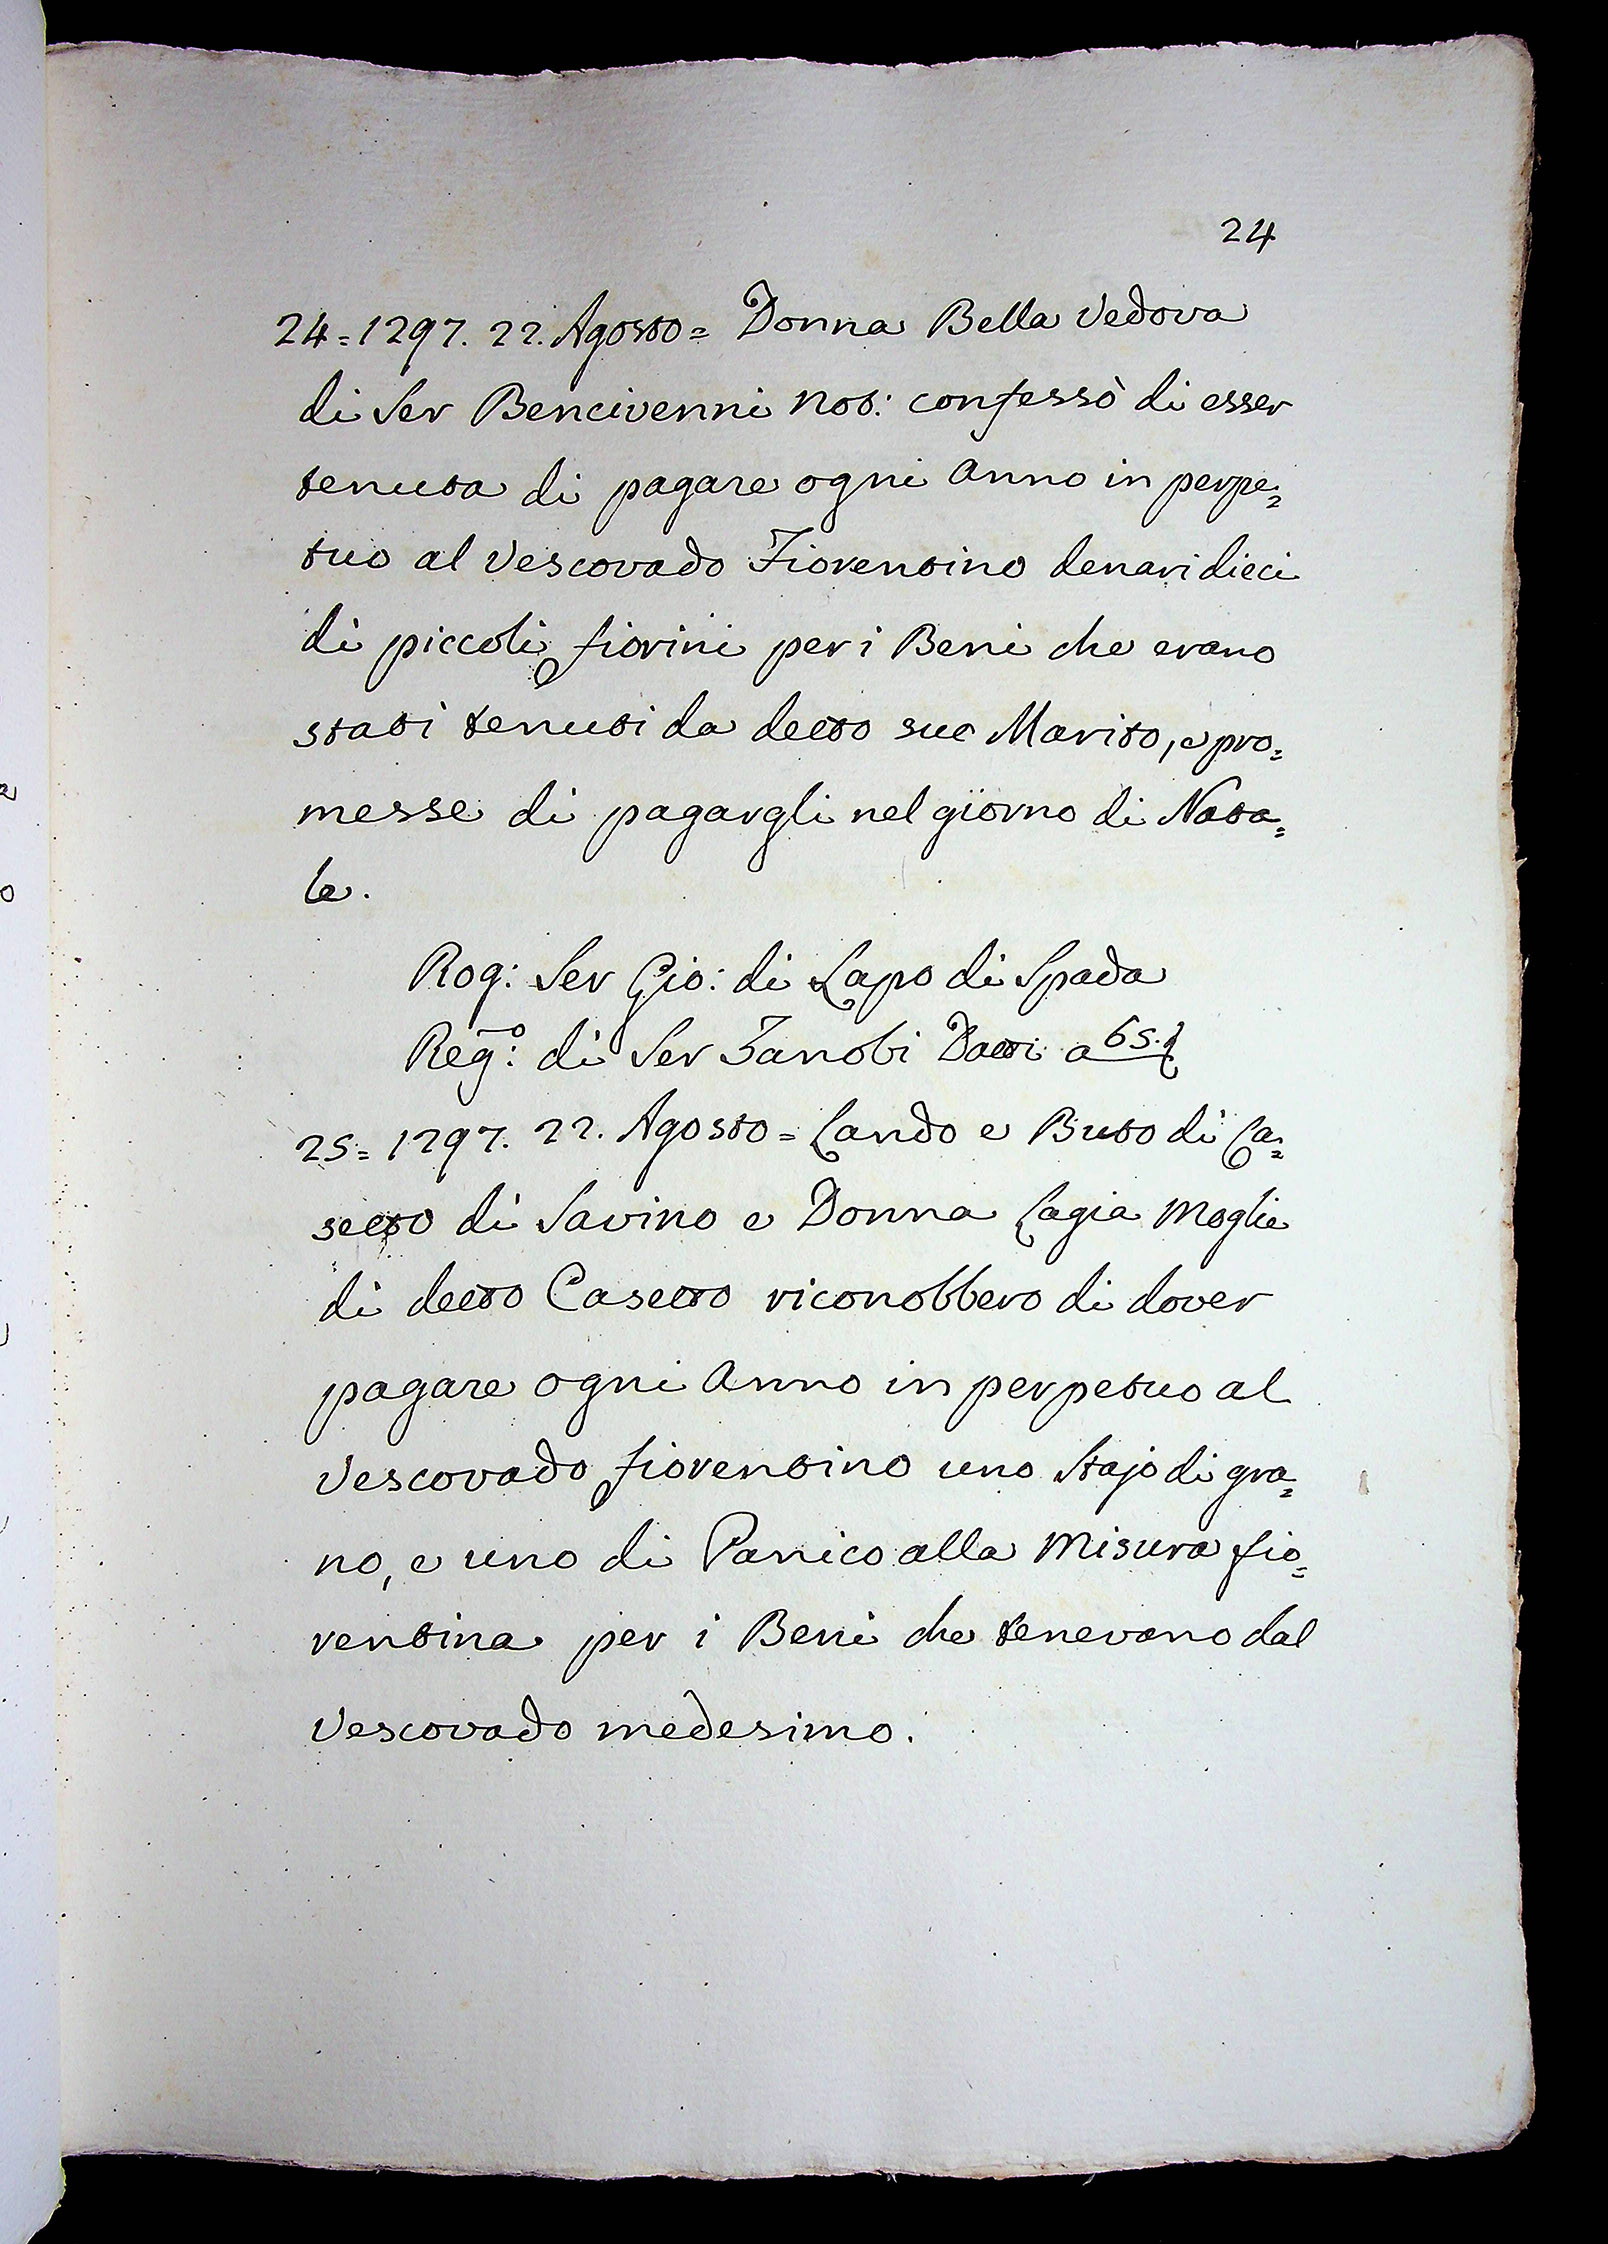 24
24 = 1297. 22. Agosto = Donna Bella Vedova
di Ser Bencivenni Not: confessò di esser
tenuta di pagare ogni Anno in perpe=
tuo al Vescovado Fiorentino denari dieci
di piccoli fiorini per i Beni che erano
stati tenuti da detto suo Marito, e pro=
messe di pagargli nel giorno di Nata=
le.
Rog: Ser Gio: di Lapo di Spada
Reg:º di Ser Zanobi Datti a 65.
25 = 1297. 22. Agosto = Lando e Buto di Ca=
setto di Savino e Donna Lagia Moglie
di detto Casetto riconobbero di dover
pagare ogni Anno in perpetuo al
Vescovado fiorentino uno Stajo di gra=
no, e uno di Panico alla Misura fio=
rentina per i Beni che tenevano dal
Vescovado medesimo.